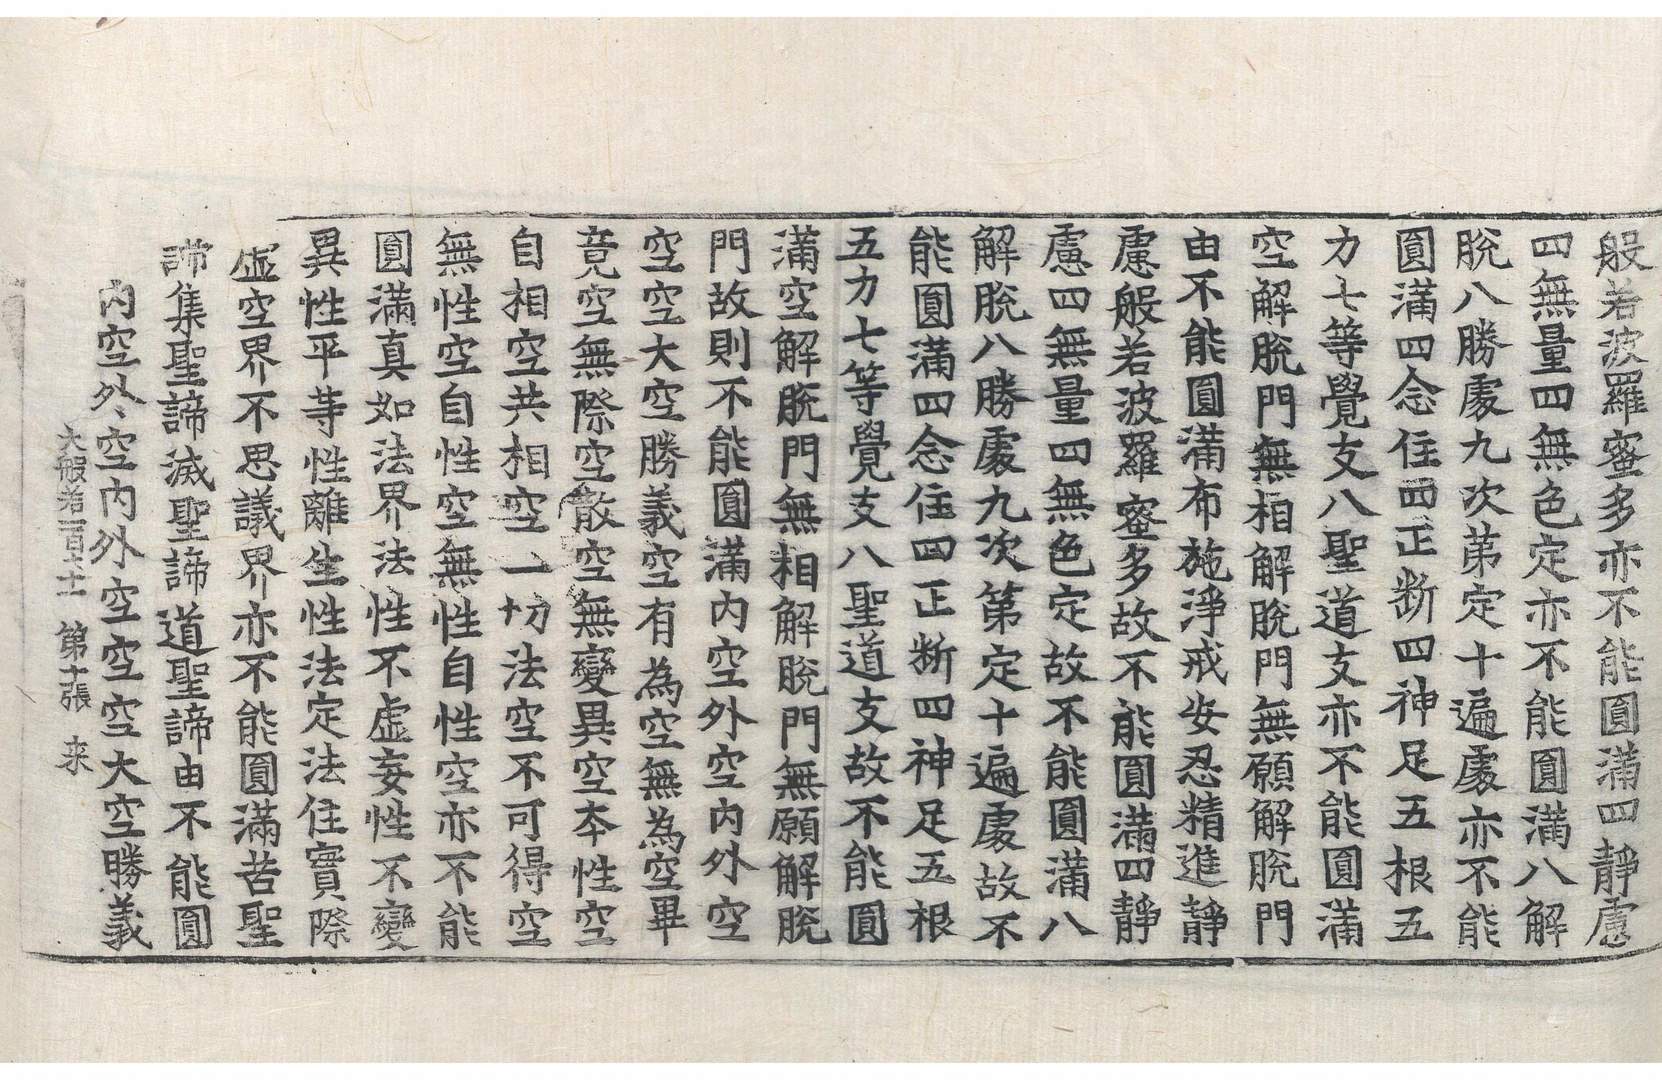 般若波羅蜜多亦不能圓滿四靜慮
四無量四無色定亦不能圓滿八解
脫八勝處九次第定十遍處亦不能
圓滿四念住四正斷四神足五根五
力七等覺支八聖道支亦不能圓滿
空解脫門無相解脫門無願解脫門
由不能圓滿布施淨戒安忍精進靜
慮般若波羅蜜多故不能圓滿四靜
慮四無量四無色定故不能圓滿八
解脫八勝處九次第定十遍處故不
能圓滿四念住四正斷四神足五根
五力七等覺支八聖道支故不能圓
滿空解脫門無相解脫門無願解脫
門故則不能圓滿內空外空內外空
空空大空勝義空有為空無為空畢
竟空無際空散空無變異空本性空
自相空共相空一切法空不可得空
無性空自性空無性自性空亦不能
圓滿真如法界法性不虛妄性不變
異性平等性離生性法定法住實際
虛空界不思議界亦不能圓滿苦聖
諦集聖諦滅聖諦道聖諦由不能圓
內空外空內外空空空大空勝義
大般若一百六十 第十張 来